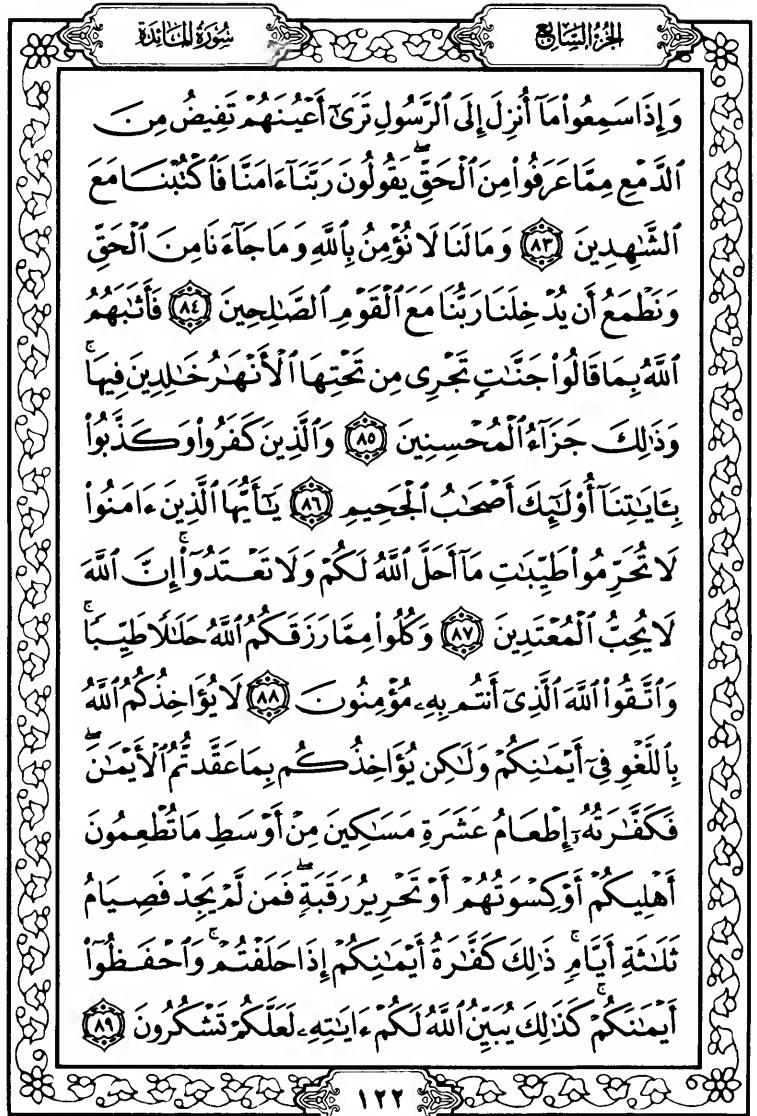 سُورَةُ المَائدَة
الجُزءُ السَّابِع
وَإِذَا سَمِعُوا۟ مَآ أُنزِلَ إِلَى ٱلرَّسُولِ تَرَىٰٓ أَعْيُنَهُمْ تَفِيضُ مِنَ
ٱلدَّمْعِ مِمَّا عَرَفُوا۟ مِنَ ٱلْحَقِّ ۖ يَقُولُونَ رَبَّنَآ ءَامَنَّا فَٱكْتُبْنَا مَعَ
ٱلشَّٰهِدِينَ ٨٣ وَمَا لَنَا لَا نُؤْمِنُ بِٱللَّهِ وَمَا جَآءَنَا مِنَ ٱلْحَقِّ
وَنَطْمَعُ أَن يُدْخِلَنَا رَبُّنَا مَعَ ٱلْقَوْمِ ٱلصَّٰلِحِينَ ٨٤ فَأَثَٰبَهُمُ
ٱللَّهُ بِمَا قَالُوا۟ جَنَّٰتٍ تَجْرِى مِن تَحْتِهَا ٱلْأَنْهَٰرُ خَٰلِدِينَ فِيهَا ۚ
وَذَٰلِكَ جَزَآءُ ٱلْمُحْسِنِينَ ٨٥ وَٱلَّذِينَ كَفَرُوا۟ وَكَذَّبُوا۟
بِـَٔايَٰتِنَآ أُو۟لَٰٓئِكَ أَصْحَٰبُ ٱلْجَحِيمِ ٨٦ يَٰٓأَيُّهَا ٱلَّذِينَ ءَامَنُوا۟
لَا تُحَرِّمُوا۟ طَيِّبَٰتِ مَآ أَحَلَّ ٱللَّهُ لَكُمْ وَلَا تَعْتَدُوٓا۟ ۚ إِنَّ ٱللَّهَ
لَا يُحِبُّ ٱلْمُعْتَدِينَ ٨٧ وَكُلُوا۟ مِمَّا رَزَقَكُمُ ٱللَّهُ حَلَٰلًا طَيِّبًا ۚ
وَٱتَّقُوا۟ ٱللَّهَ ٱلَّذِىٓ أَنتُم بِهِۦ مُؤْمِنُونَ ٨٨ لَا يُؤَاخِذُكُمُ ٱللَّهُ
بِٱللَّغْوِ فِىٓ أَيْمَٰنِكُمْ وَلَٰكِن يُؤَاخِذُكُم بِمَا عَقَّدتُّمُ ٱلْأَيْمَٰنَ ۖ
فَكَفَّٰرَتُهُۥٓ إِطْعَامُ عَشَرَةِ مَسَٰكِينَ مِنْ أَوْسَطِ مَا تُطْعِمُونَ
أَهْلِيكُمْ أَوْ كِسْوَتُهُمْ أَوْ تَحْرِيرُ رَقَبَةٍ ۖ فَمَن لَّمْ يَجِدْ فَصِيَامُ
ثَلَٰثَةِ أَيَّامٍ ۚ ذَٰلِكَ كَفَّٰرَةُ أَيْمَٰنِكُمْ إِذَا حَلَفْتُمْ ۚ وَٱحْفَظُوٓا۟
أَيْمَٰنَكُمْ ۚ كَذَٰلِكَ يُبَيِّنُ ٱللَّهُ لَكُمْ ءَايَٰتِهِۦ لَعَلَّكُمْ تَشْكُرُونَ ٨٩
١٢٢